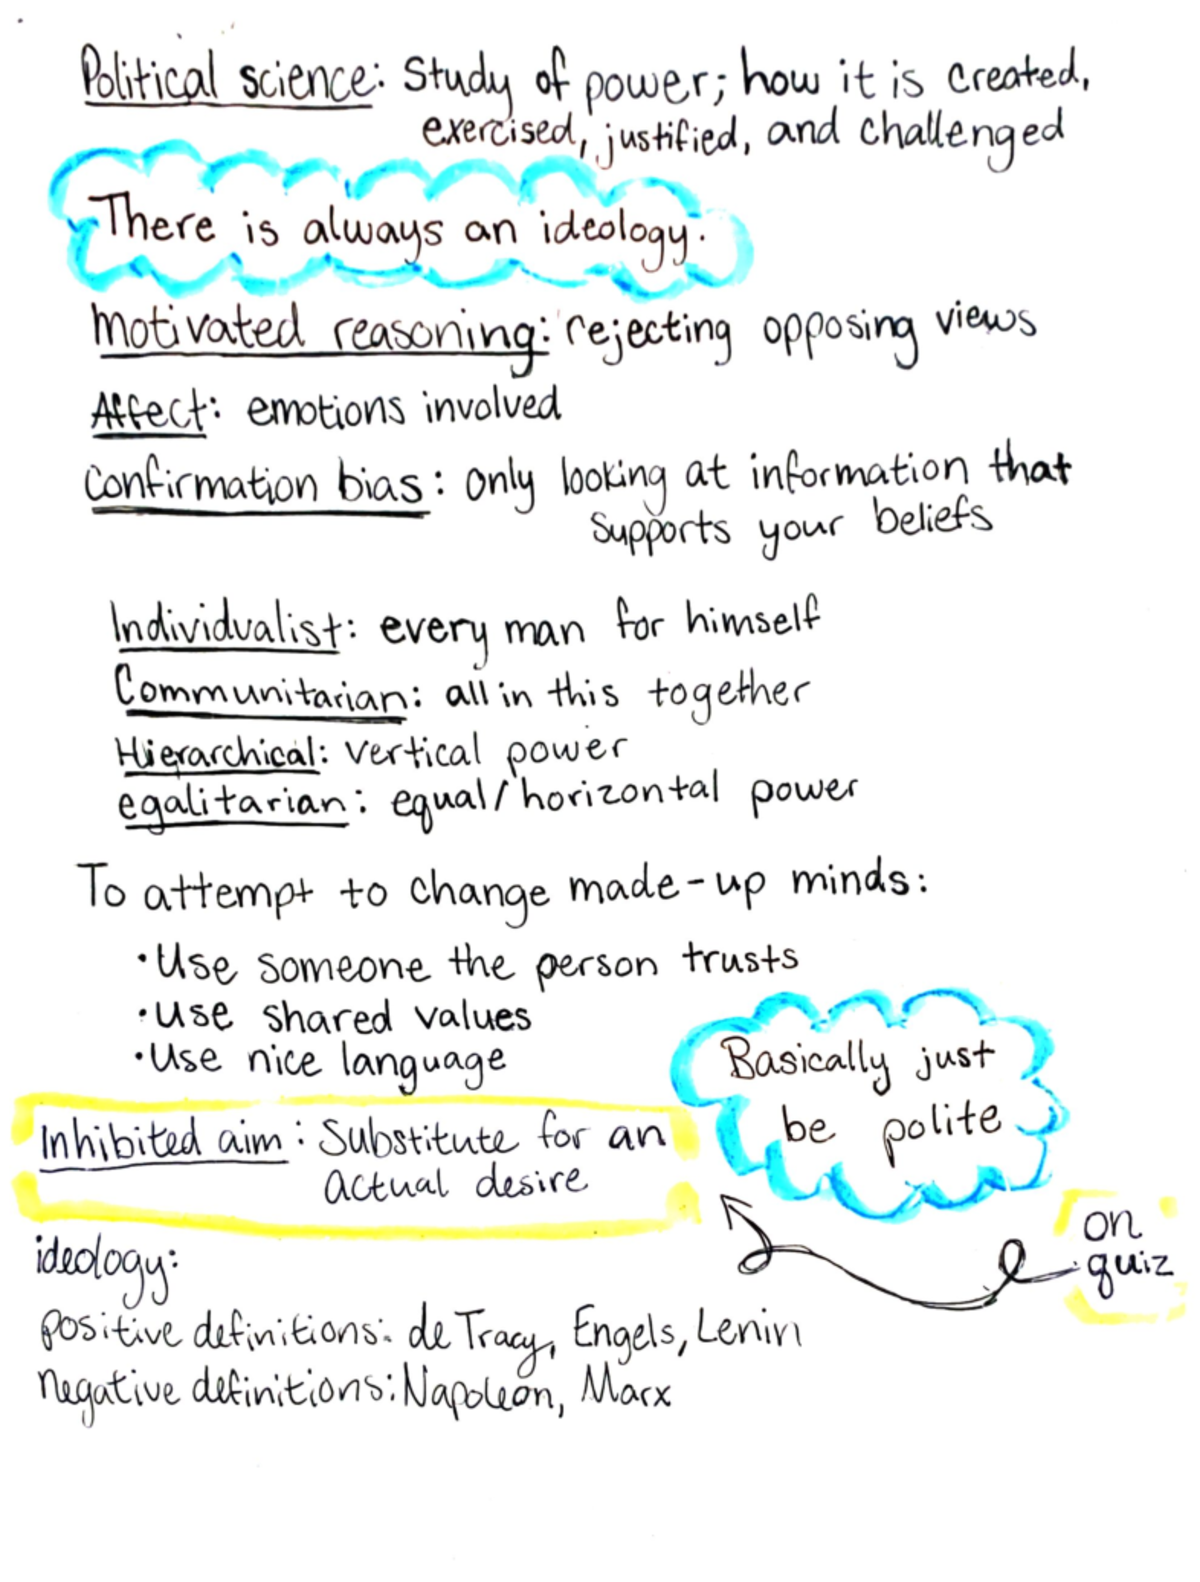 Political science: Study of power; how it is created,
exercised, justified, and challenged
There is always an ideology.
Motivated reasoning: rejecting opposing views
Affect: emotions involved
Confirmation bias: only looking at information that
supports your beliefs
Individualist: every man for himself
Communitarian: all in this together
Hierarchical: vertical power
egalitarian: equal/horizontal power
To attempt to change made-up minds:
•Use someone the person trusts
•Use shared values
•Use nice language
Basically just
be polite
Inhibited aim: Substitute for an
actual desire
on
quiz
ideology:
positive definitions: de Tracy, Engels, Lenin
negative definitions: Napoleon, Marx